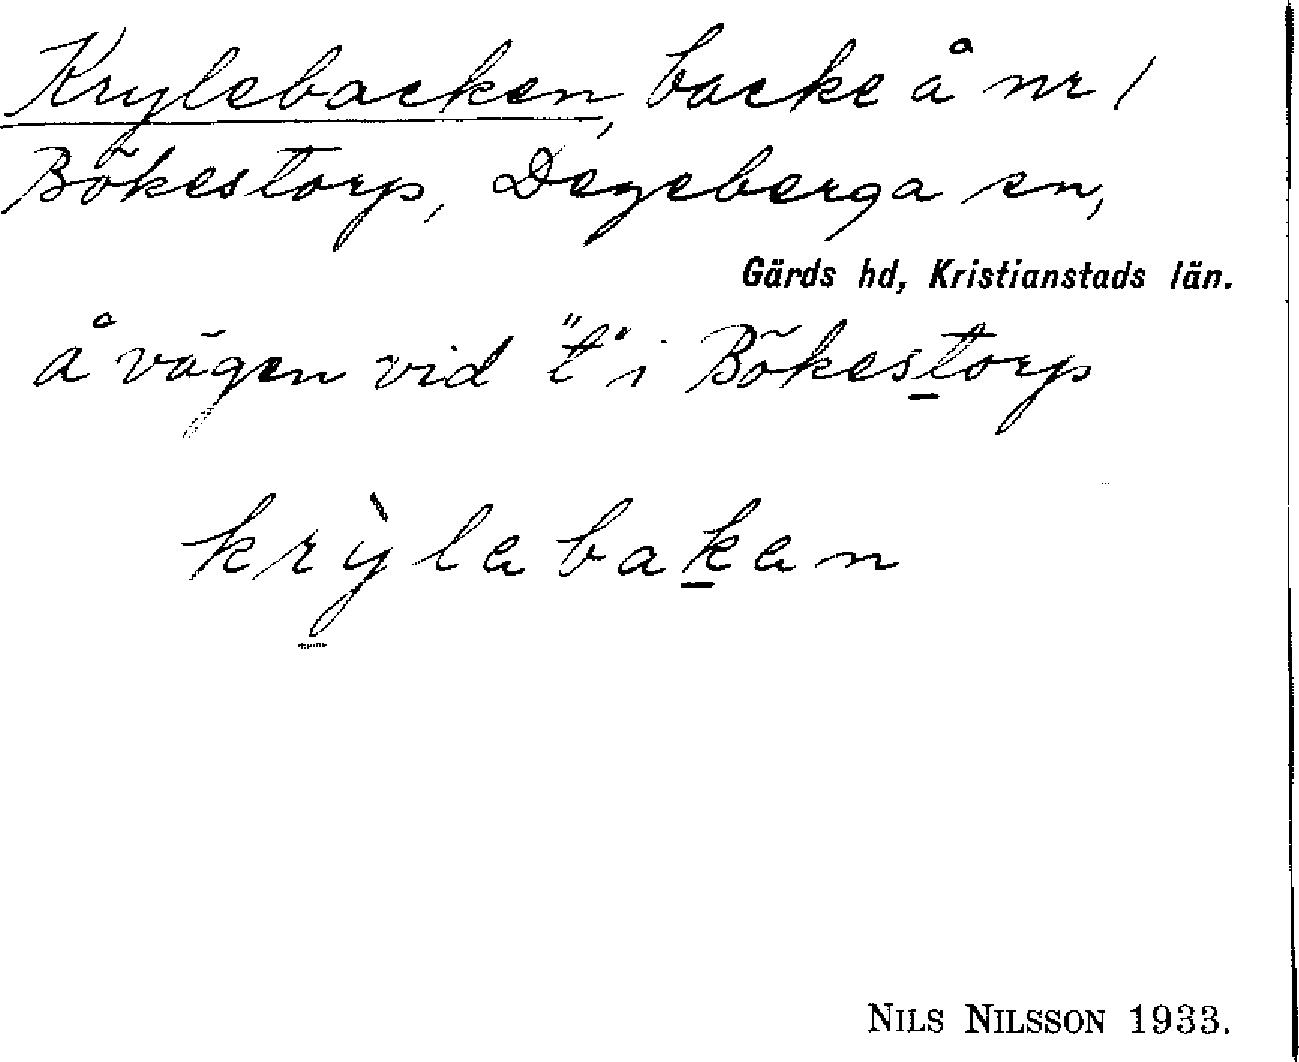 Krylebacken, backe å nr 1
Bökestorp, Degeberga sn,
Gärds hd, Kristianstads län.
å vägen vid "t" i Bökestorp
krỳlebaken
NILS NILSSON 1933.